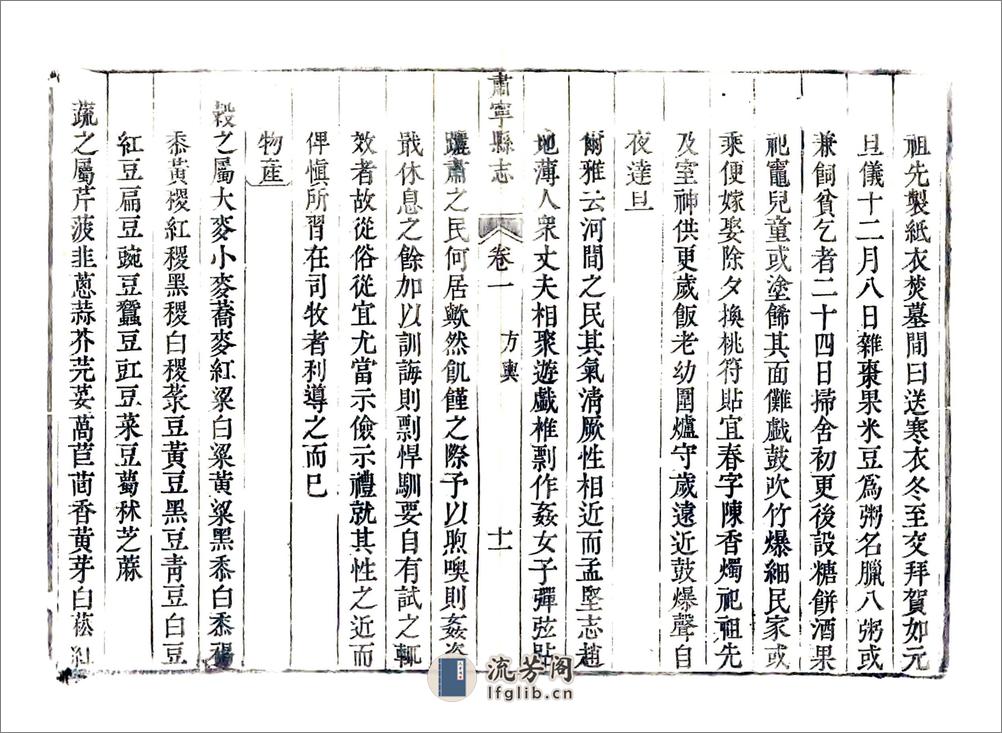 祖先製紙衣焚墓間曰送寒衣冬至交拜賀如元
旦儀十二月八日雜棗果米豆爲粥名臘八粥或
兼飼貧乞者二十四日掃舍初更後設糖餅酒果
祀竈兒童或塗餙其面儺戲鼓吹竹爆細民家或
乘便嫁娶除夕換桃符貼宜春字陳香燭祀祖先
及室神供更歲飯老幼圍爐守歲遠近鼓爆聲自
夜達旦
爾雅云河間之民其氣清厥性相近而孟堅志趙
地薄人衆丈夫相聚遊戲椎剽作姦女子彈弦跕
肅寧縣志
卷一
方輿
十一
躧肅之民何居歟然飢饉之際予以煦噢則姦姿
戢休息之餘加以訓誨則剽悍馴要自有試之輒
效者故從俗從宜尤當示儉示禮就其性之近而
俾愼所習在司牧者利導之而已
物産
穀之屬大麥小麥蕎麥紅粱白粱黃粱黑黍白黍
黍黃稷紅稷黑稷白稷菉豆黃豆黑豆青豆白豆
紅豆扁豆豌豆蠶豆豇豆菜豆蔔秫芝蔴
蔬之屬芹菠韭蔥蒜芥芫荽萵苣茴香黃芽白菘紅
流芳阁
lfglib.cn